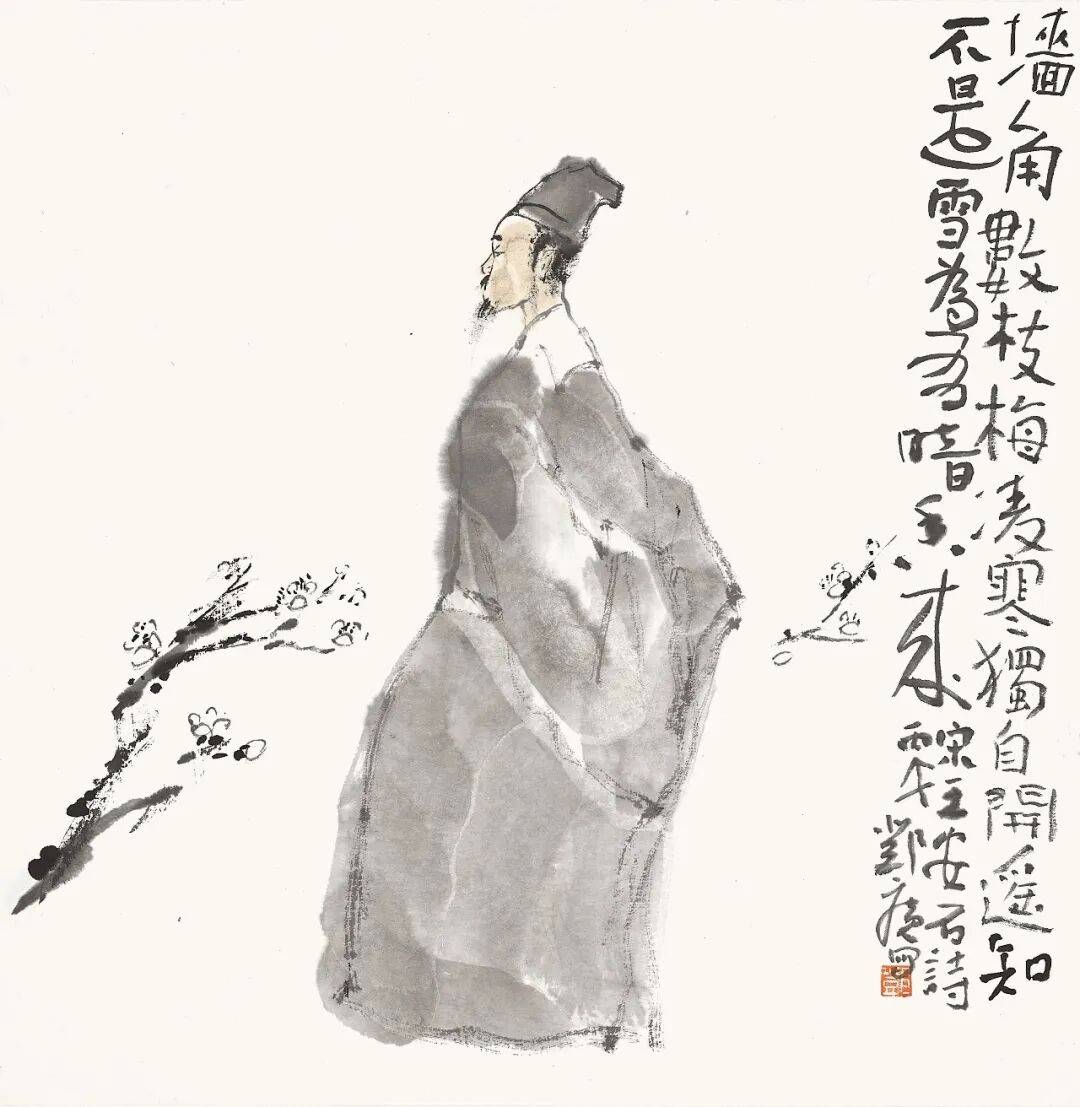 墻角數枝梅凌寒獨自開遥知
不是雪為有暗香来
宋王安石詩